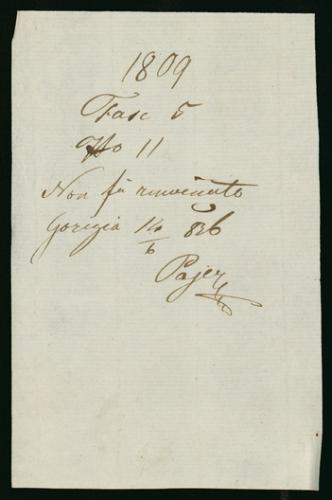 1809
Fasc 5
No 11
Non fu rinvenuto
Gorizia 14/6 826
Pajer